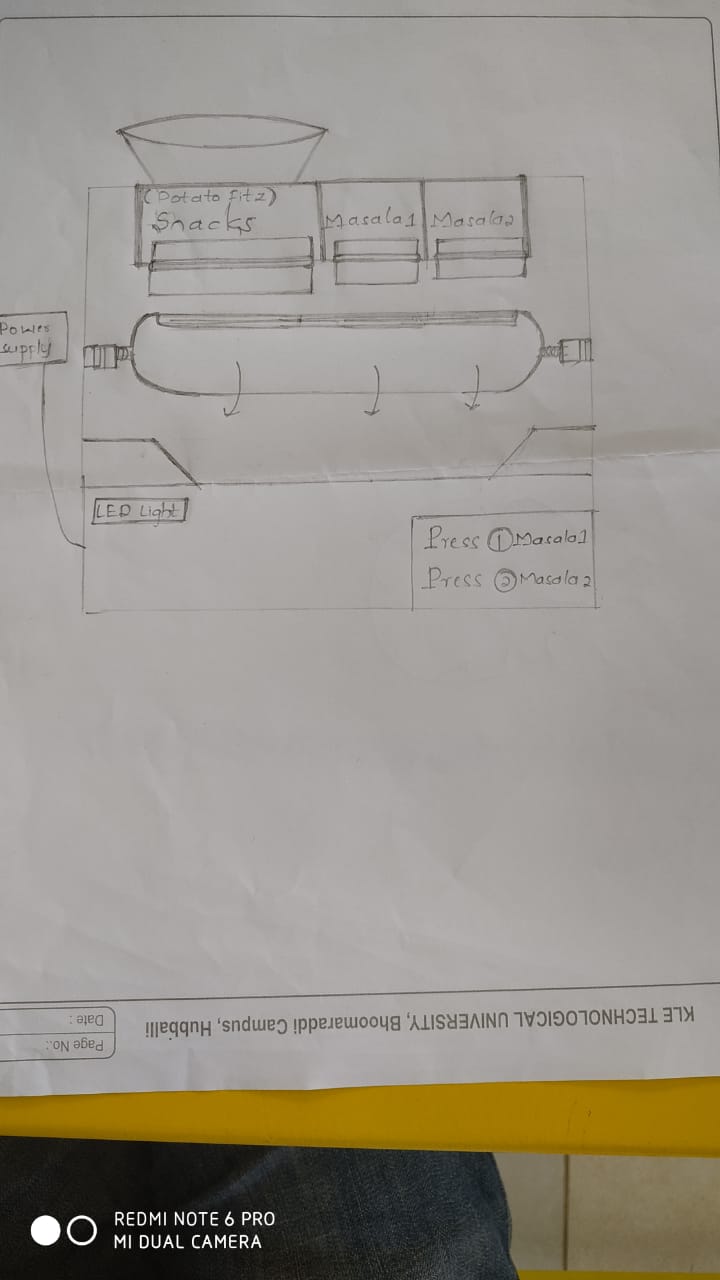 (Potato fitz)
Snacks
Masala1
Masala2
Power
supply
LED Light
Press ① Masala1
Press ② Masala2
KLE TECHNOLOGICAL UNIVERSITY, Bhoomaraddi Campus, Hubballi
Page No.:
Date :
REDMI NOTE 6 PRO
MI DUAL CAMERA